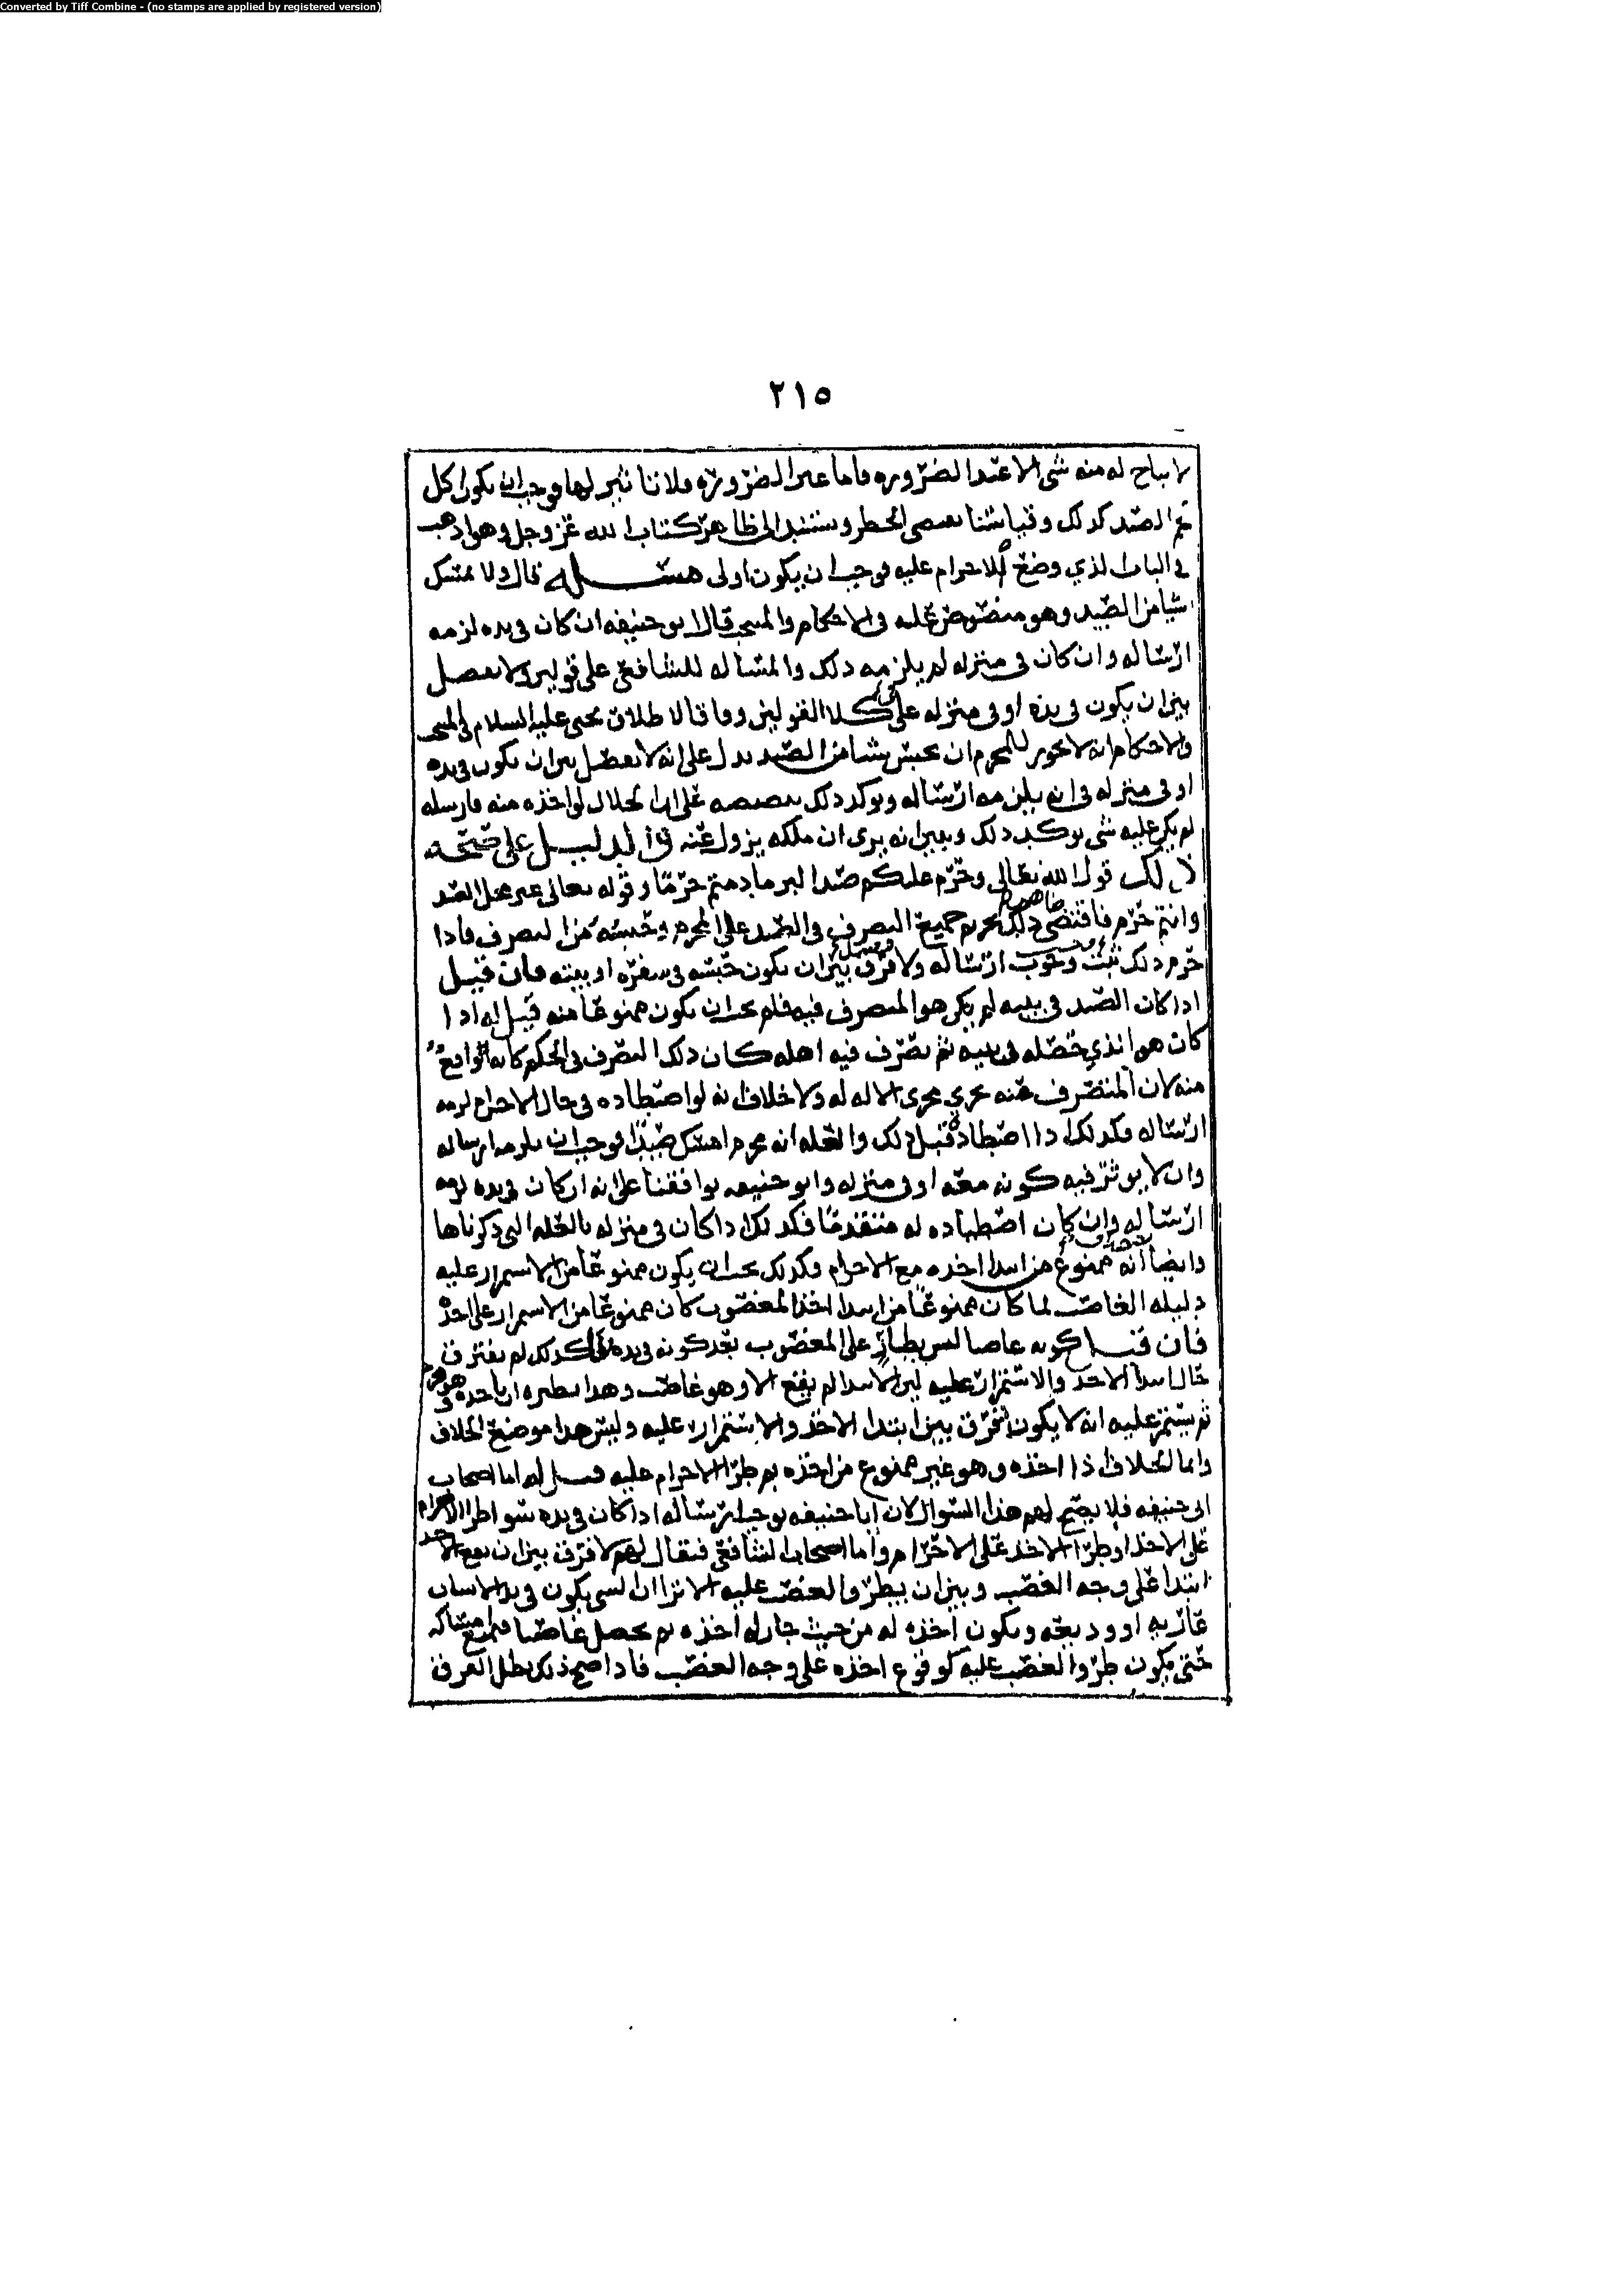 Converted by Tiff Combine - (no stamps are applied by registered version)
٢١٥
لا يباح له منه شي الا عند الضروره فاما عىر الضروره فلا تاثير لها فوجب ان يكون اكل
لحم الصيد كذلك وقياسنا يقتضي الحظر ويستند الى ظاهر كتاب الله عز وجل وهو اذهب
في الباب الذي وضع الاحرام عليه فوجب ان يكون اولى مسئله قال ولا يمسك
شيا من الصيد وهو منصوص عليه في الاحكام والمنتخب قال ابو حنيفه ان كان في يده لزمه
ارساله وان كان في منزله لم يلزمه ذلك والمسأله للشافعي على قولين ولا يفصل
بين ان يكون في يده او في منزله على كلا القولين وما قال اطلاق يحيى عليه السلام في المنتخب
والاحكام انه لا يجوز للمحرم ان يحبس شيا من الصيد يدل على انه لا يفصل بين ان يكون في يده
او في منزله في انه يلزمه ارساله ويوكد ذلك تنصيصه على ان الحلال لو اخذه منه فارسله
لم يكن عليه شي يوكد ذلك ويبين انه يرى ان ملكه يزول عنه والدليل على صحة
ذلك قول الله تعالى وحرم عليكم صيد البر ما دمتم حرما وقوله تعالى غير محلي الصيد
وانتم حرم فاقتضى ظاهر ذلك تحريم جميع التصرف في الصيد على المحرم وحبسه من التصرف فاذا
حرم ذلك ثبت وجوب ارساله ولا فرق بين ان يكون حبسه في سفره او بيته فان قيل
اذا كان الصيد في بيته لم يكن هو المتصرف فيه فلم يجب ان يكون ممنوعا منه قيل له اذا
كان هو الذي حصله في بيته ثم تصرف فيه اهله كان ذلك التصرف في الحكم كانه الواقع
منه لان المتصرف عنه يجري مجرى الاله له ولا خلاف انه لو اصطاده في حال الاحرام لزمه
ارساله فكذلك اذا اصطاده قبل ذلك والعله انه محرم امسك صيدا فوجب ان يلزمه ارساله
وان لا يوثر فيه كونه معه او في منزله وابو حنيفه يوافقنا على انه ان كان في يده لزمه
ارساله وان كان اصطياده له متقدما فكذلك اذا كان في منزله بالعله التي ذكرناها
وايضا انه ممنوع من ابتدا اخذه مع الاحرام فكذلك يجب ان يكون ممنوعا من الاستمرار عليه
دليله الغاصب لما كان ممنوعا من ابتدا اخذ المغصوب كان ممنوعا من الاستمرار على اخذه
فان قيل كونه غاصبا ليس بطار على المغصوب بعد كونه في يده فلذلك لم يفترق
حال ابتدا الاخذ والاستمرار عليه لان الابتدا لم يقع الا وهو غاصب وهذا نظيره ان ياخذه وهو محرم
ثم يستمر عليه انه لا يكون الفرق بين ابتدا الاخذ والاستمرار عليه وليس هذا موضع الخلاف
وانما الخلاف اذا اخذه وهو غير ممنوع من اخذه ثم طرا الاحرام عليه قيل له اما اصحاب
ابي حنيفه فلا يصح لهم هذا السوال لان ابا حنيفه يوجب ارساله اذا كان في يده سوا طرا الاحرام
على الاخذ او طرا الاخذ على الاحرام واما اصحاب الشافعي فيقال لهم لا فرق بين ان يقع الاخذ
ابتدا على وجه الغصب وبين ان يطرو الغصب عليه الا ترى ان الشي يكون في يد الانسان
عاريه او وديعه ويكون اخذه له من حيث جاز له اخذه ثم يحصل غاصبا بمنع امساكه
حتى يكون طرو الغصب عليه كوقوع اخذه على وجه الغصب فاذا صح ذلك بطل الفرق